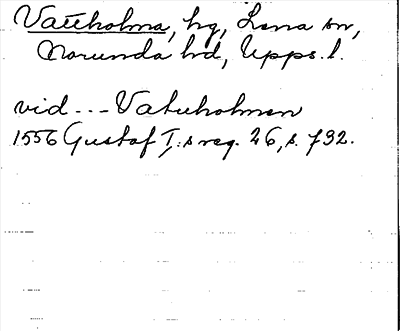 Vattholma, hg, Lena sn,
Norunda hd, Upps. l.
vid --- Vatuholmen
1556 Gustaf I:s reg. 26, s. 792.